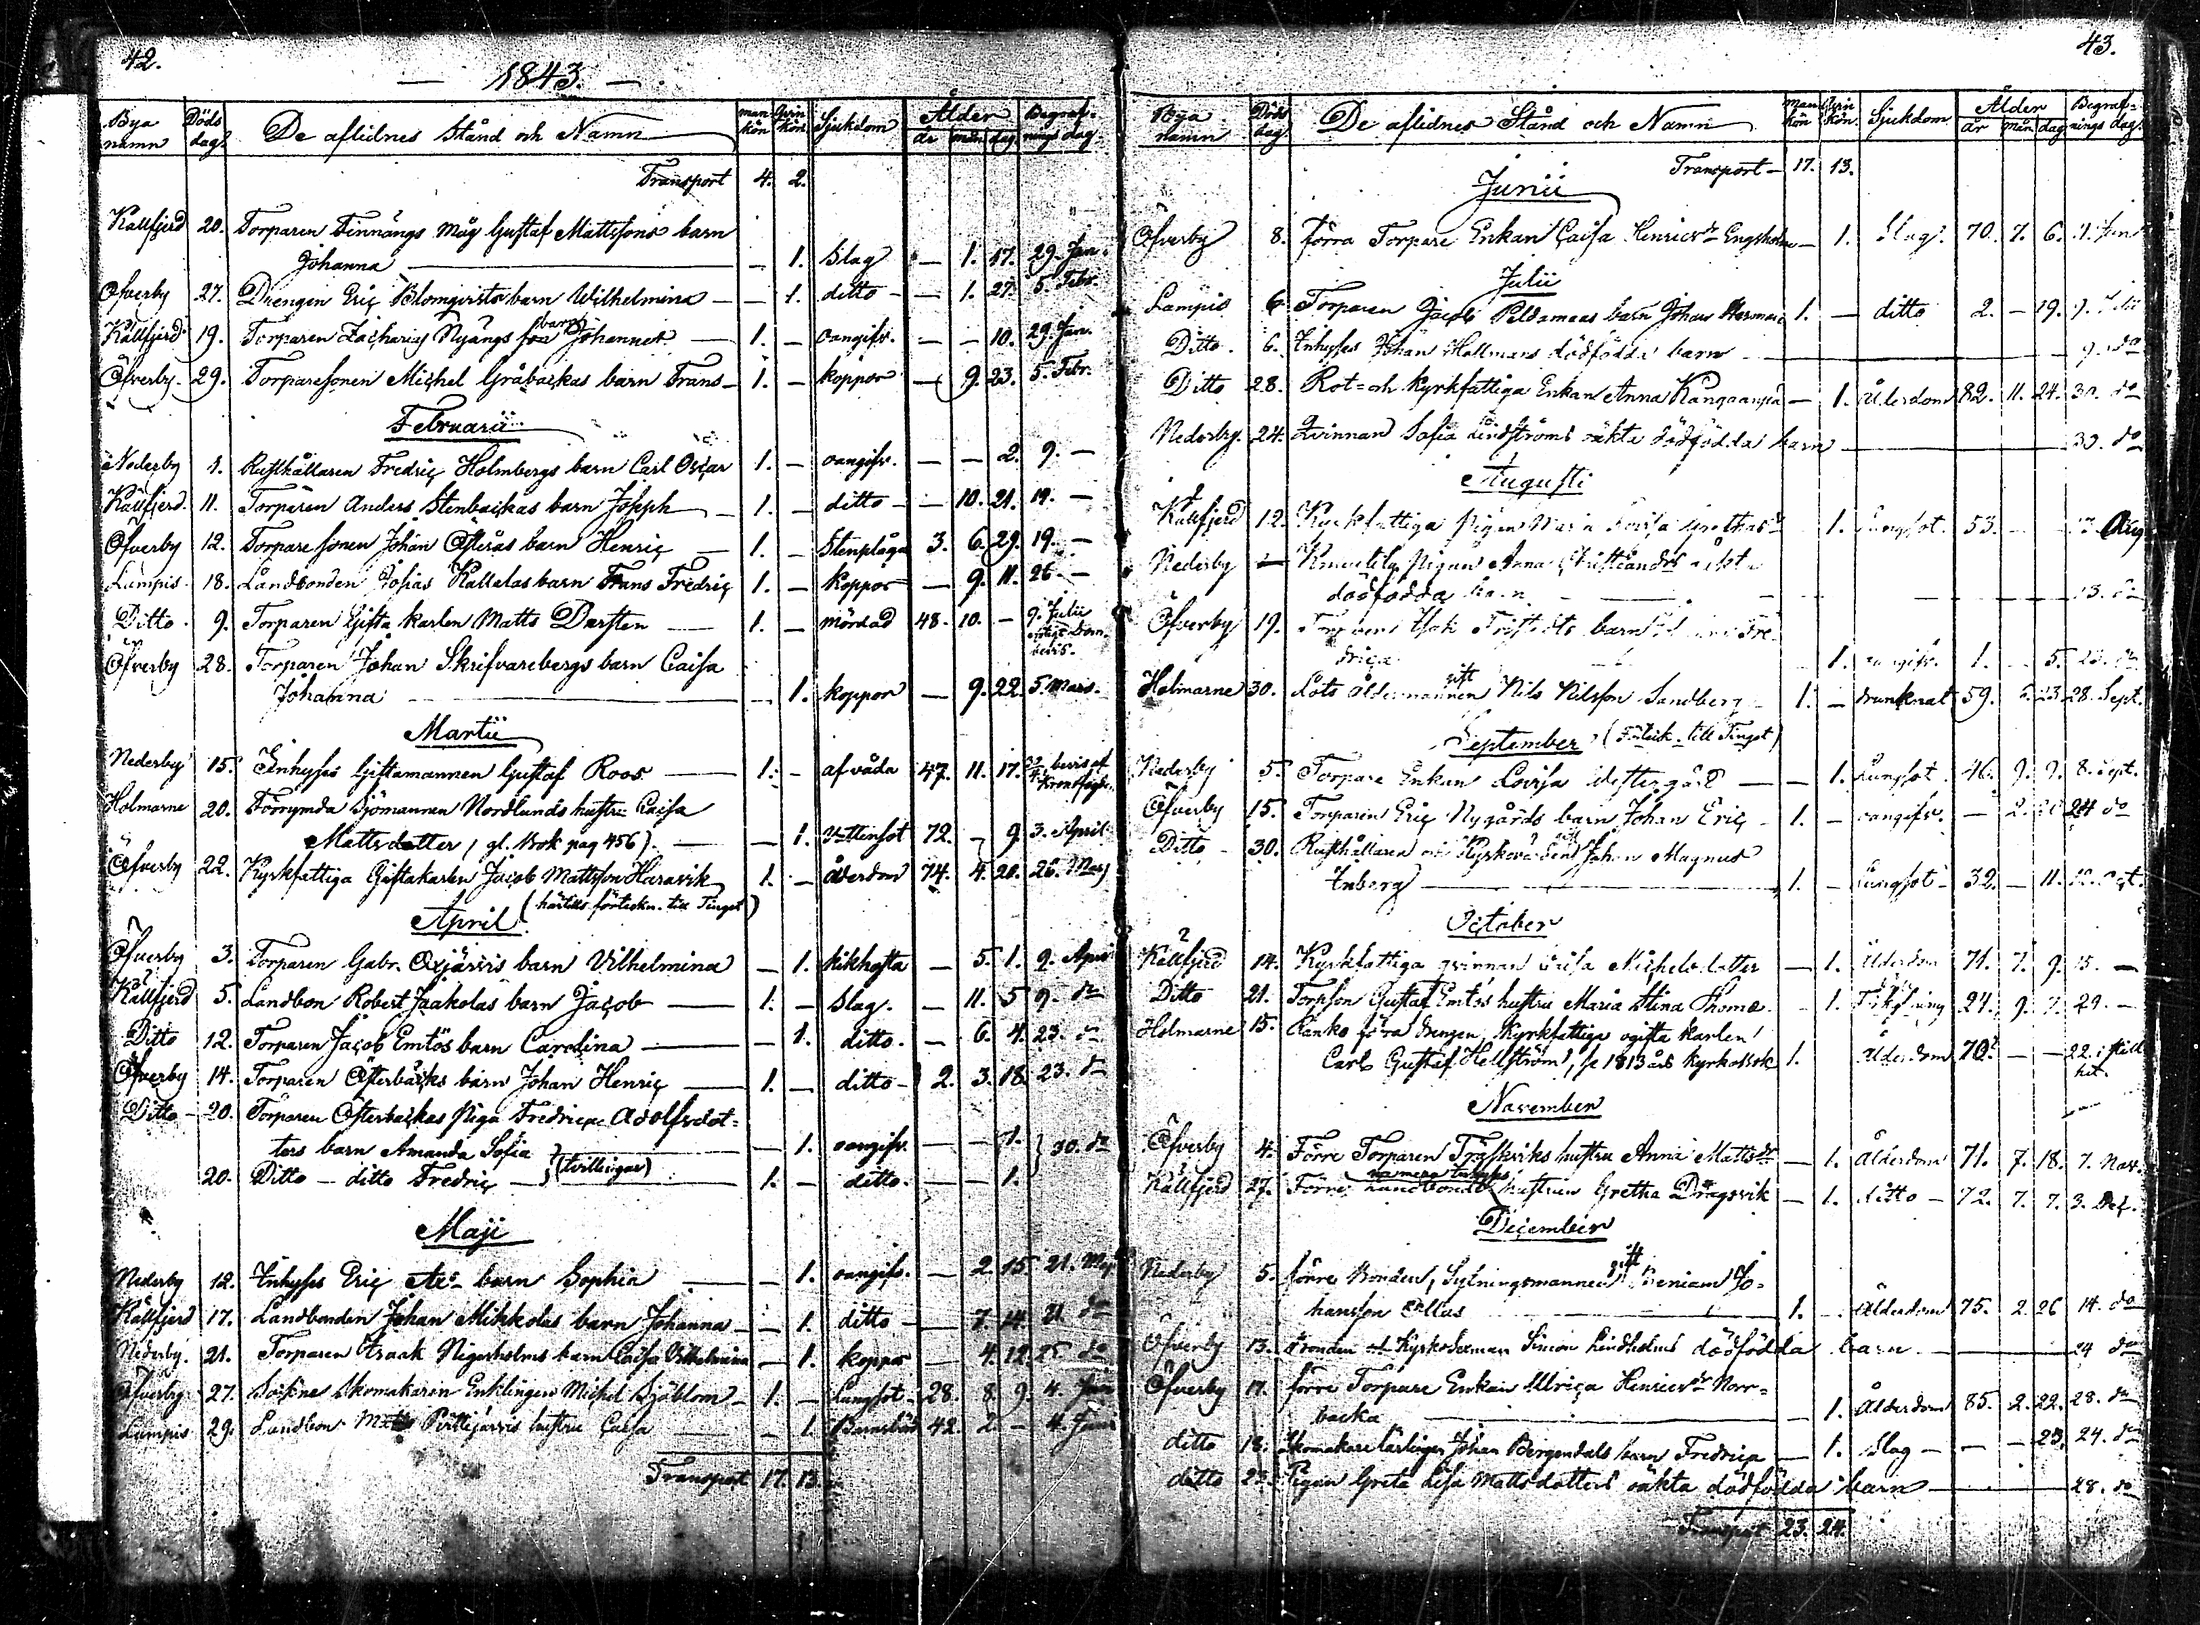 42.
— 1843. —
Bya namn Döds dag. De aflidnes Stånd och Namn man kön Qvin kön. Sjukdom Ålder år mån dag Begraf- nings dag.
Transport 4. 2.
Kållfjerd 20. Torparen Finnängs Måg Gustaf Mattssons barn
Johanna — — 1. Slag — 1. 17. 29. Jan.
Öfverby 27. Drengen Eriç Blomqvists barn Wilhelmina — — 1. ditto — — 1. 27. 5. Febr.
Kållfjerd 19. Torparen Zacharias Nyängs barn Johannes — 1. — oangifv. — — 10. 29. Jan.
Öfverby. 29. Torparesonen Michel Gråbackas barn Frans — 1. — koppor — 9. 23. 5. Febr.
Februarii
Nederby 1. Rusthållaren Fredriç Holmbergs barn Carl Osçar 1. — oangifv. — — 2. 9. —
Kållfjerd. 11. Torparen Anders Stenbackas barn Joseph — 1. — ditto — — 10. 21. 19. —
Öfverby 12. Torpare sonen Johan Österås barn Henriç — 1. — Stenplåga 3. 6. 29. 19. —
Lampis. 18. Landbonden Josias Kallelas barn Frans Fredriç 1. — koppor — 9. 11. 26 —
Ditto. 9. Torparen Gifta karlen Matts Dersten — 1. — mördad 48. 10. — 9. Julii
Öfverby 28. Torparen Johan Skrifvarebergs barn Caisa
Johanna — — 1. koppor — 9. 22. 5. Mars.
Martii
Nederby 15. Inhyses Giftamannen Gustaf Roos — 1. — af våda 47. 11. 17. bevis af
Holmarne 20. Förrymda Sjömannen Nordlunds hustru Caisa
Mattsdotter (gl. Bok pag 456) — — 1. Vattensot 72. — 9. 3. April.
Öfverby 22. Kyrkfattiga Giftakarlen Jacob Mattsson Haravik 1. — ålderdom 74. 4. 20. 26. Mars
(härtills förteckn. till Tinget)
April
Öfverby 3. Torparen Gabr. Oxjärvis barn Vilhelmina — 1. kikhosta — 5. 1. 9. April
Kållfjerd 5. Landbon Robert Jaakolas barn Jaçob — 1. — Slag. — 11. 5 9. do
Ditto 12. Torparen Jaçob Emtös barn Carolina — — 1. ditto. — 6. 4. 23. do
Öfverby 14. Torparen Österbacks barn Johan Henriç — 1. — ditto — 2. 3. 18. 23. do
Ditto — 20. Torparen Österbackas Piga Fredriça Adolfsdot-
ters barn Amanda Sofia — 1. oangifv. — — 1. 30. do
(tvillingar)
20. Ditto — ditto Fredriç — 1. — ditto. — — 1.
Maji
Nederby 12. Inhyses Eriç barn Sophia — — 1. oangifv. — 2. 15. 21. Maj
Kållfjerd 17. Landbonden Johan Mikkolas barn Johanna — — 1. ditto — 7. 14. 21. do
Nederby. 21. Torparen Isaak Nigerholms barn Caisa Vilhelmina — 1. koppor — 4. 12. 25. do
Öfverby. 27. Sockne Skomakaren Enklingen Michel Sjöblom — 1. — Lungsot — 28. 8. 9. 4. Juni
Lampis 29. Landbon Matts Perttijärvis hustru Caisa — 1. Barnsbörd 42. 2 — 4. Juni
Transport 17. 13.
43.
Bya namn Döds dag. De aflidnes Stånd och Namn man kön Qvin kön. Sjukdom Ålder år mån dag Begraf- nings dag.
Transport — 17. 13.
Junii
Öfverby 8. förra Torpare Enkan Caisa Henricsdr Engsholm — 1. Slag. 70. 7. 6. 11. Juni
Julii
Lampis 6. Torparen Jacob Peldomaas barn Johan Herman 1. — ditto 2. — 19. 9. Julii
Ditto. 6. Inhyses Johan Hallmans dödfödda barn — 9. do
Ditto 28. Rot- och Kyrkfattiga Enkan Anna Kangaanpä — 1. Ålderdom 82. 11. 24. 30. do
Nederby. 24. Qvinnan Sofia Lindströms oäkta dödfödda barn — 30. do
Augusti
Kållfjerd 12. Kyrkfattiga Pigan Maria 1. Lungsot. 53. — Aug
Nederby — Pigan Anna oäkta
dödfödda barn — 13. do
Öfverby 19. Torparen Isak Fristedts barn
driça 1. oangifv. 1. — 5. do
Holmarne 30. Lots åldermannen gift Nils Nilsson Sandberg — 1. — drunknat 59. 23 28. Sept.
September (Förteck. till Tinget)
Nederby 5. Torpare Enkan Lovisa Westergård — — 1. Lungsot. 46. 9. 9. 8. Sept.
Öfverby 15. Torparen Eriç Nygårds barn Johan Eriç — 1. — oangifv. — 2. 24 do
Ditto — 30. Rusthållaren och Kyrkovärden Johan Magnus
Enberg — 1. — Lungsot — 32. — 11.
October
Kållfjerd 14. Kyrkfattiga qvinnan Michelsdotter — 1. Ålderdom 71. 7. 9. 15. —
Ditto 21. Torpson Gustaf Emtös hustru Maria Stina Thomæ. 1. 27. 9. 7. 29. —
Holmarne 15. förra drengen, Kyrkfattiga ogifta karlen
Carl Gustaf Hellström, se 1813 års Kyrkobok 1. Ålderdom 70? — — 22. i Hit.
November
Öfverby 4. Förre Torparen Träskviks hustru Anna Mattsdr — 1. Ålderdom 71. 7. 18. 7. Nov.
Kållfjerd 27. Förre Landbonde hustrun Gretha Dragsvik — 1. ditto — 72. 7. 7. 3. Deç.
Deçember
Nederby 5. förre Bonden, Sytningsmannen gift Beniam Jo-
hansson Ollas — 1. — Ålderdom 75. 2. 26 14. do
Öfverby 13. Bonden och Kyrkosexman Simon Lindholms dödfödda barn — 24 do
Öfverby 17. förre Torpare Enkan Ulriça Henricsdr Norr-
backa — 1. Ålderdom 85. 2. 22. 28. do
ditto 18. Skomakare lärlingen Johan Bergendals barn Fredriça — 1. Slag — — — 23. 24. do
ditto 23. Pigan Greta Lisa Mattsdotters oäkta dödfödda barn — 28. do
Transport 23. 24.